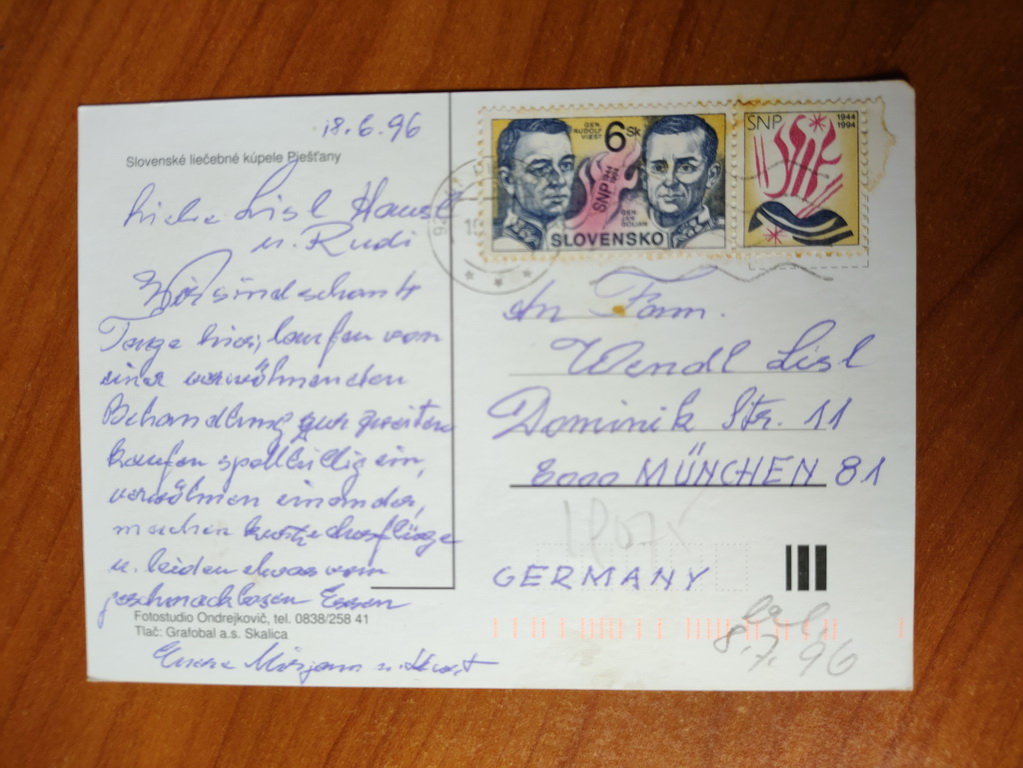 18.6.96
Slovenské liečebné kúpele Piešťany
Liebe Lisl
u. Rudi
Wir sind schon 4
Tage hier, laufen von
einer verwöhnenden
Behandlung zur zweiten
kaufen spottbillig ein,
verwöhnen einander,
machen kurze Ausflüge
u. leiden etwas vom
geschmacklosen Essen
Fotostudio Ondrejkovič, tel. 0838/258 41
Tlač: Grafobal a.s. Skalica
Eure Mirjam u.
GEN. RUDOLF VIEST
6 Sk
SNP 1944 1994
GEN. JÁN GOLIAN
SLOVENSKO
SNP 1944 1994
An Fam.
Wendl Lisl
Dominik Str. 11
8000 MÜNCHEN 81
GERMANY
8.7.96